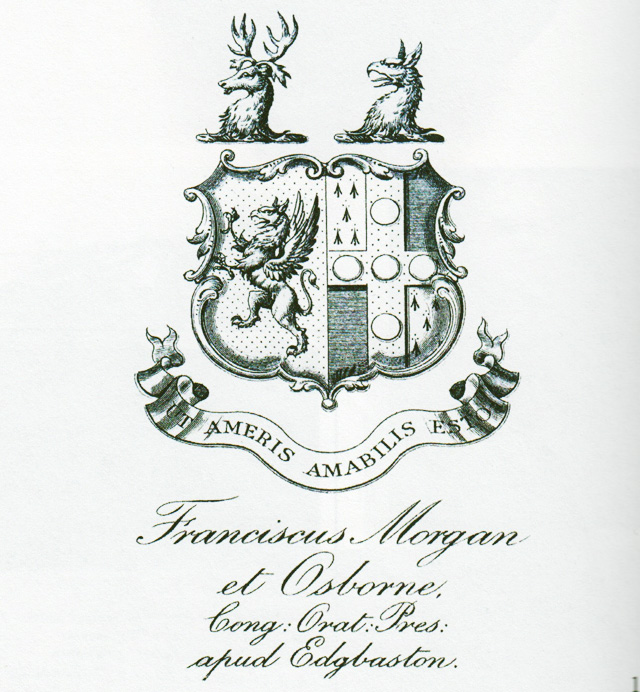 UT AMERIS AMABILIS ESTO
Franciscus Morgan
et Osborne,
Cong: Orat: Pres:
apud Edgbaston.